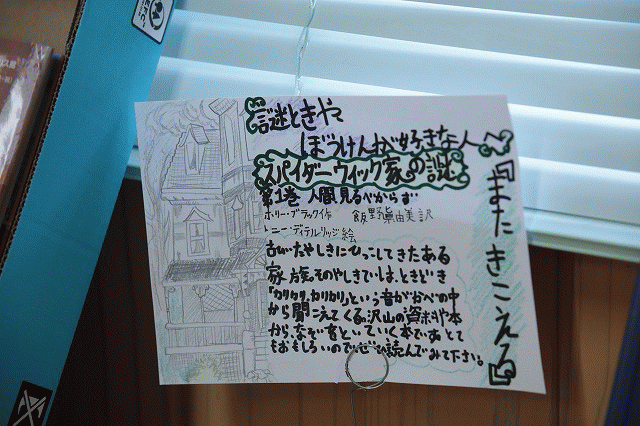 謎ときや
ぼうけんが好きな人へ
スパイダーウィック家の謎
第1巻 人間、見るべからず
ホリー・ブラック作 飯野眞由美訳
トニー・ディテルリッジ絵
古いおやしきにひっこしてきたある
家族。そのやしきでは、ときどき
「カリカリ、カリカリ」という音がかべの中
から聞こえてくる。沢山の資料や本
から、なぞをといていく本です。とて
もおもしろいのでぜひ読んでみて下さい。
『またきこえる』